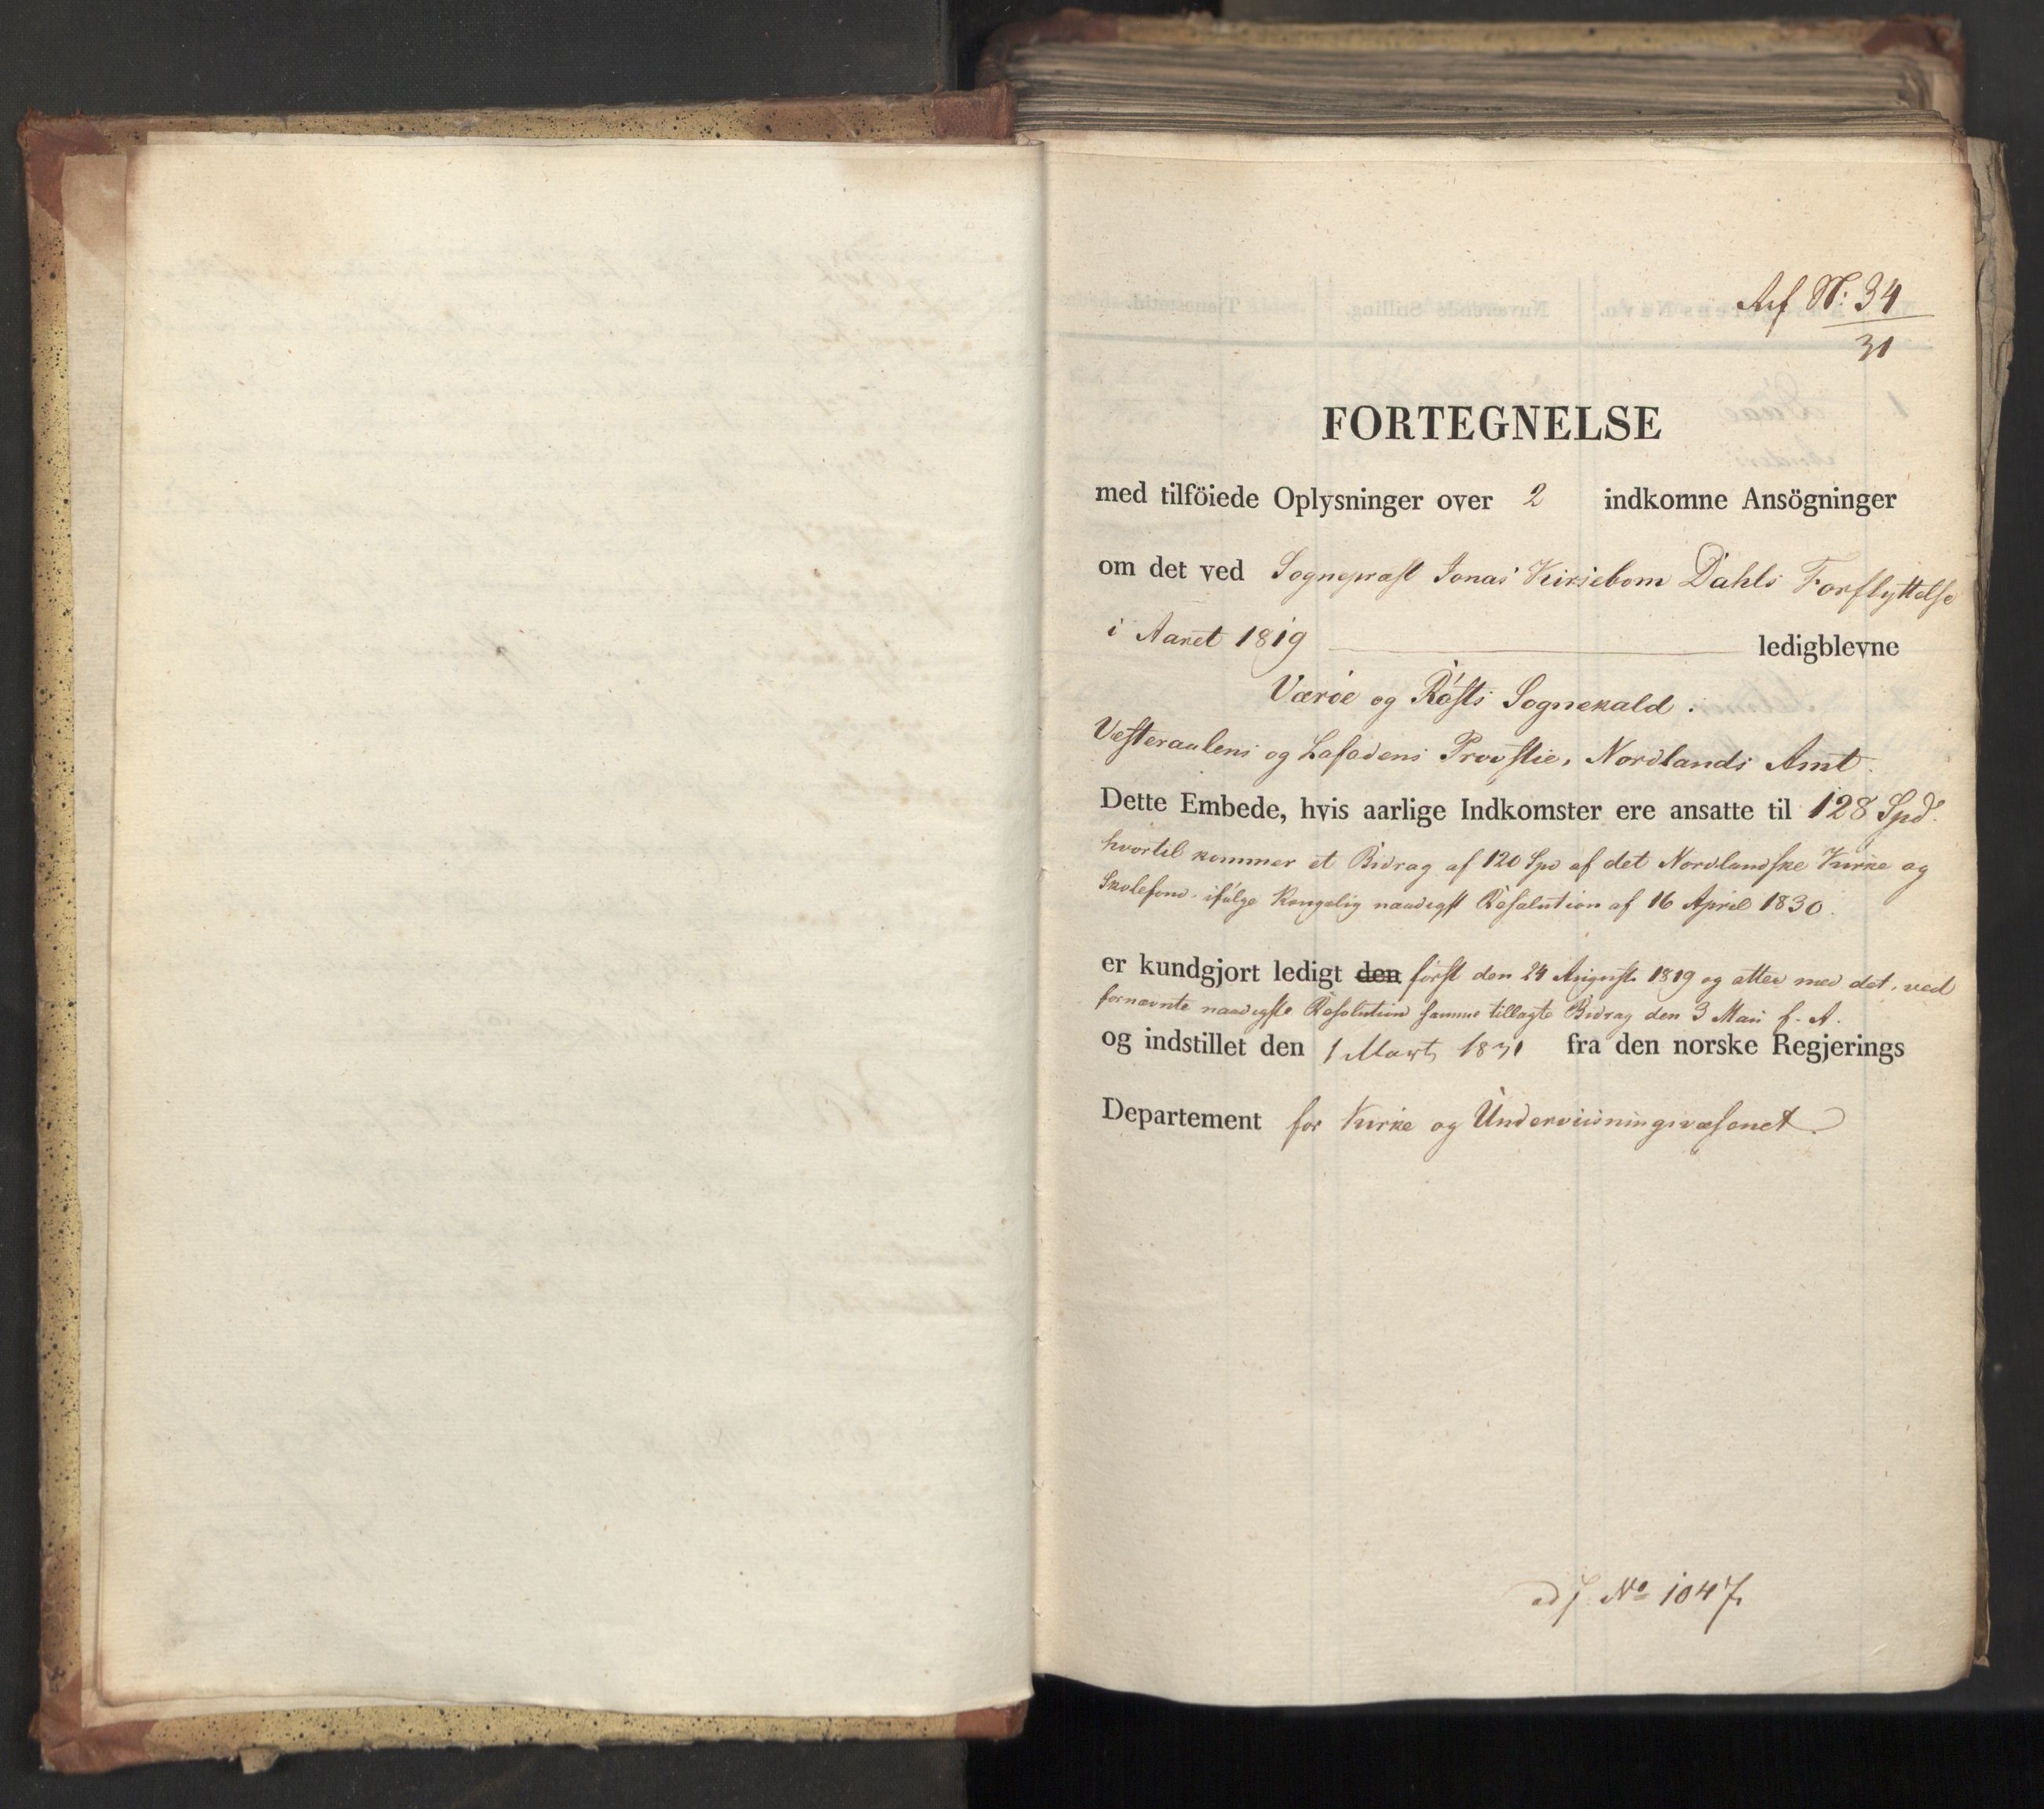 Ref Nº: 34
31
FORTEGNELSE
med tilföiede Oplysninger over 2 indkomne Ansögninger
om det ved Sognepræst Jonas Kirsebom Dahls Forflyttelse
i Aaret 1819 ledigblevne
Værøe og Røsts Sognekald.
Vesteraalens og Lofodens Provstie, Nordlands Amt.
Dette Embede, hvis aarlige Indkomster ere ansatte til 128 Spd.
hvortil kommer et Bidrag af 120 Spd af det Nordlandske Kirke og
Skolefond, ifølge Kongelig naadigst Resolution af 16 April 1830.
er kundgjort ledigt den først den 24 August 1819 og atter med det, ved
fornævnte naadigste Resolution samme tillagte Bidrag den 3 Maii f. A.
og indstillet den 1 Marts 1831 fra den norske Regjerings
Departement for Kirke og Underviisningsvæsenet.
ad J. Nº 1047